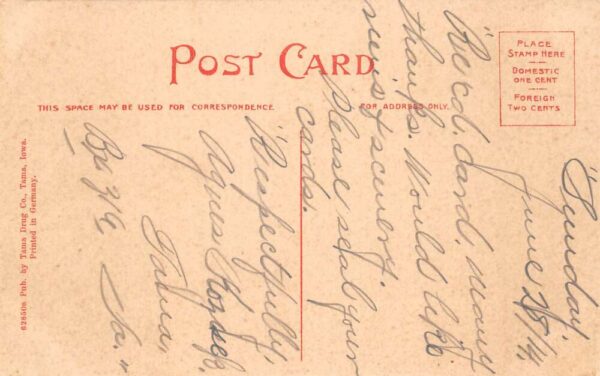 POST CARD
THIS SPACE MAY BE USED FOR CORRESPONDENCE.
FOR ADDRESS ONLY.
PLACE
STAMP HERE
DOMESTIC
ONE CENT
FOREIGN
TWO CENTS
62650a Pub. by Tama Drug Co., Tama, Iowa.
Printed in Germany.
Sunday.
June 28/14
Rec'd. card. many
thanks. Would like
please seal your
cards.
Respectfully,
Agnes
Tama,
Ia.
Bx